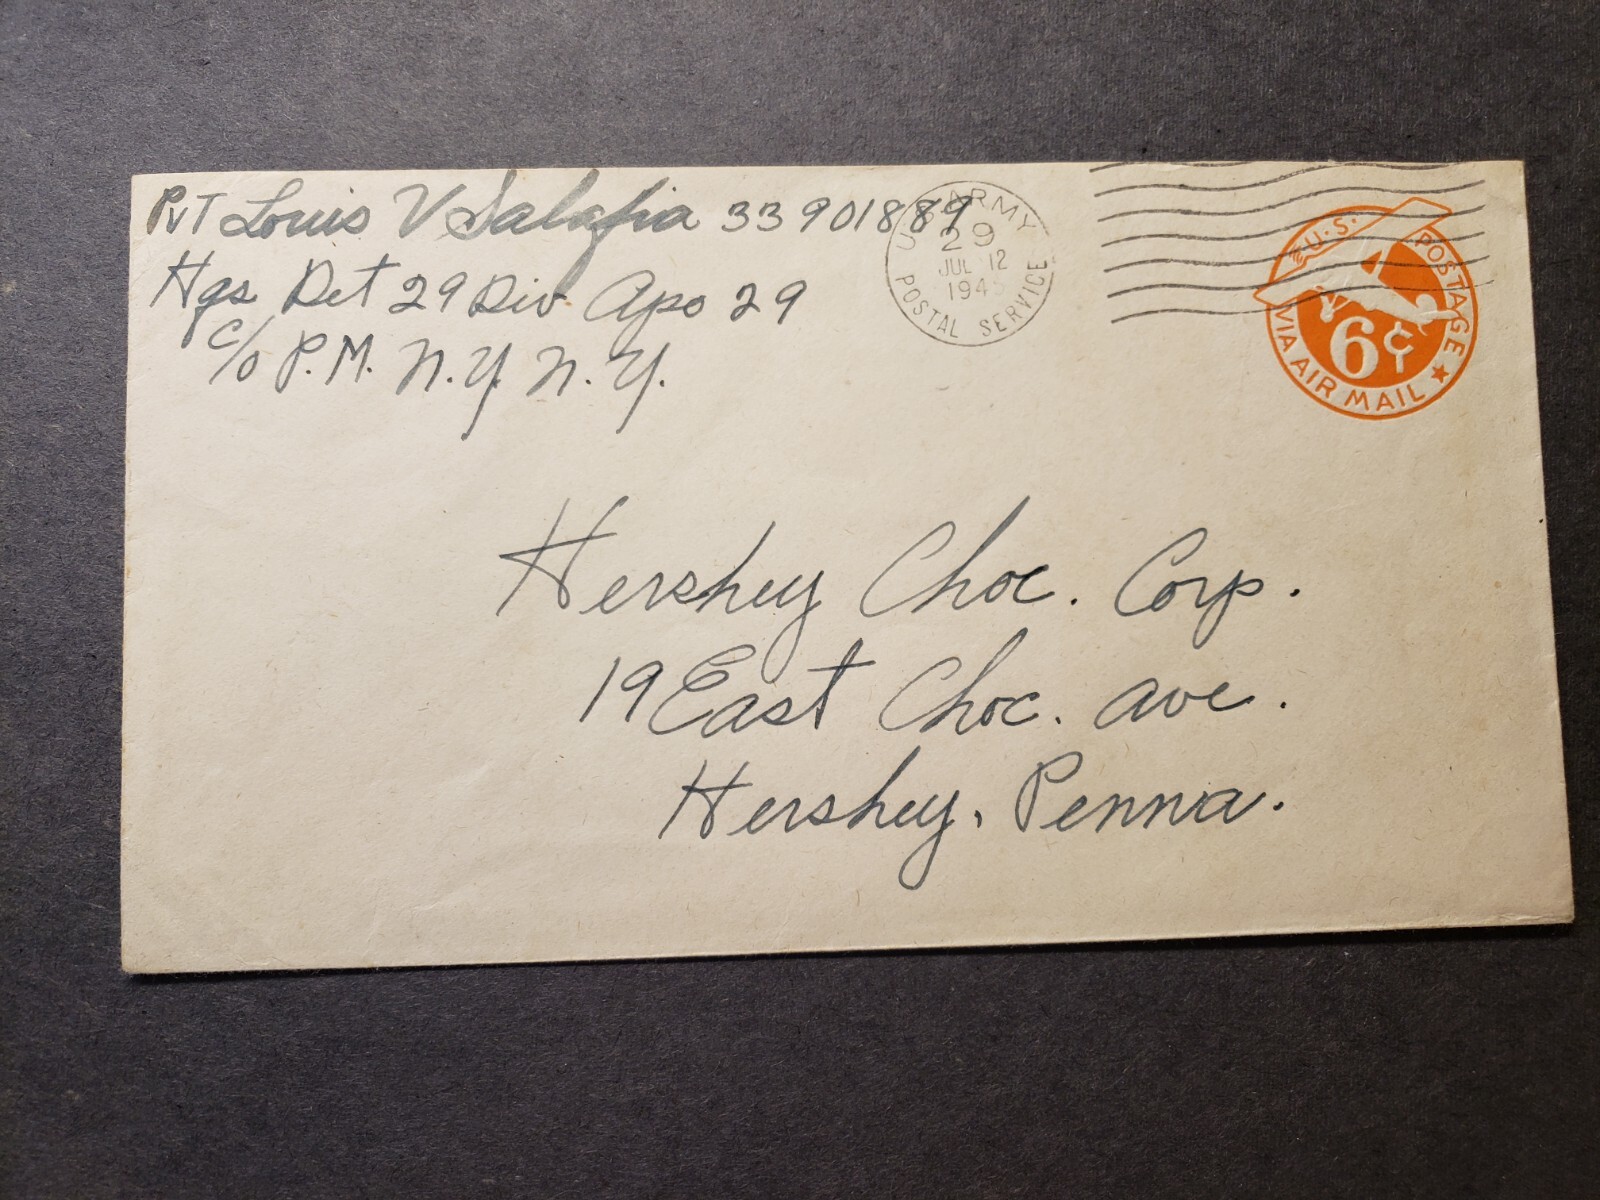 Pvt Louis V Salafia 33901889
Hqs Det 29 Div Apo 29
c/o P.M. N.Y. N.Y.
U.S. ARMY
29
JUL 12
1945
POSTAL SERVICE
U.S. POSTAGE
6¢
VIA AIR MAIL
Hershey Choc. Corp.
19 East Choc. Ave.
Hershey, Penna.